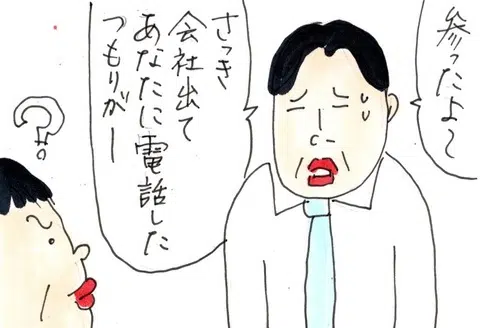 参ったよ〜
さっき
会社出て
あなたに電話した
つもりがー
?